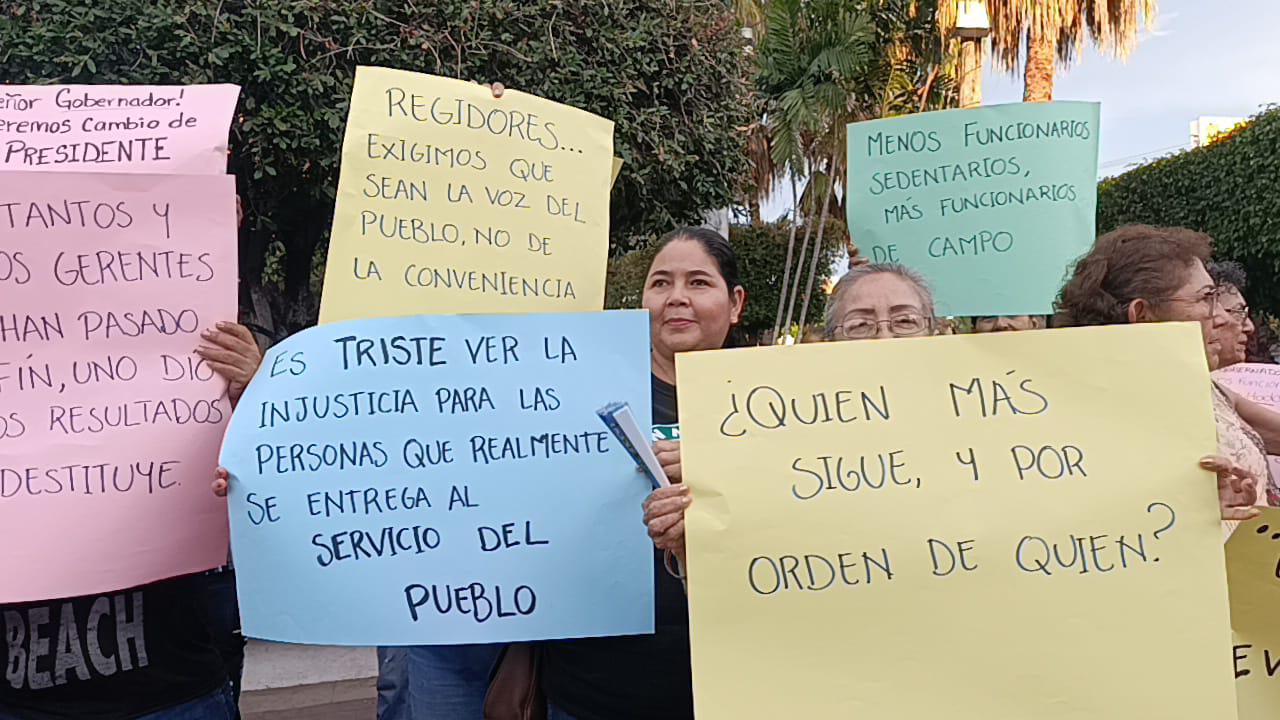 eñor Gobernador!
eremos Cambio de
PRESIDENTE
TANTOS Y
OS GERENTES
HAN PASADO,
FÍN, UNO DIO
OS RESULTADOS
DESTITUYE.
REGIDORES...
EXIGIMOS QUE
SEAN LA VOZ DEL
PUEBLO, NO DE
LA CONVENIENCIA
MENOS FUNCIONARIOS
SEDENTARIOS,
MÁS FUNCIONARIOS
DE CAMPO
ES TRISTE VER LA
INJUSTICIA PARA LAS
PERSONAS QUE REALMENTE
SE ENTREGA AL
SERVICIO DEL
PUEBLO
¿QUIEN MÁS
SIGUE, Y POR
ORDEN DE QUIEN?
BEACH